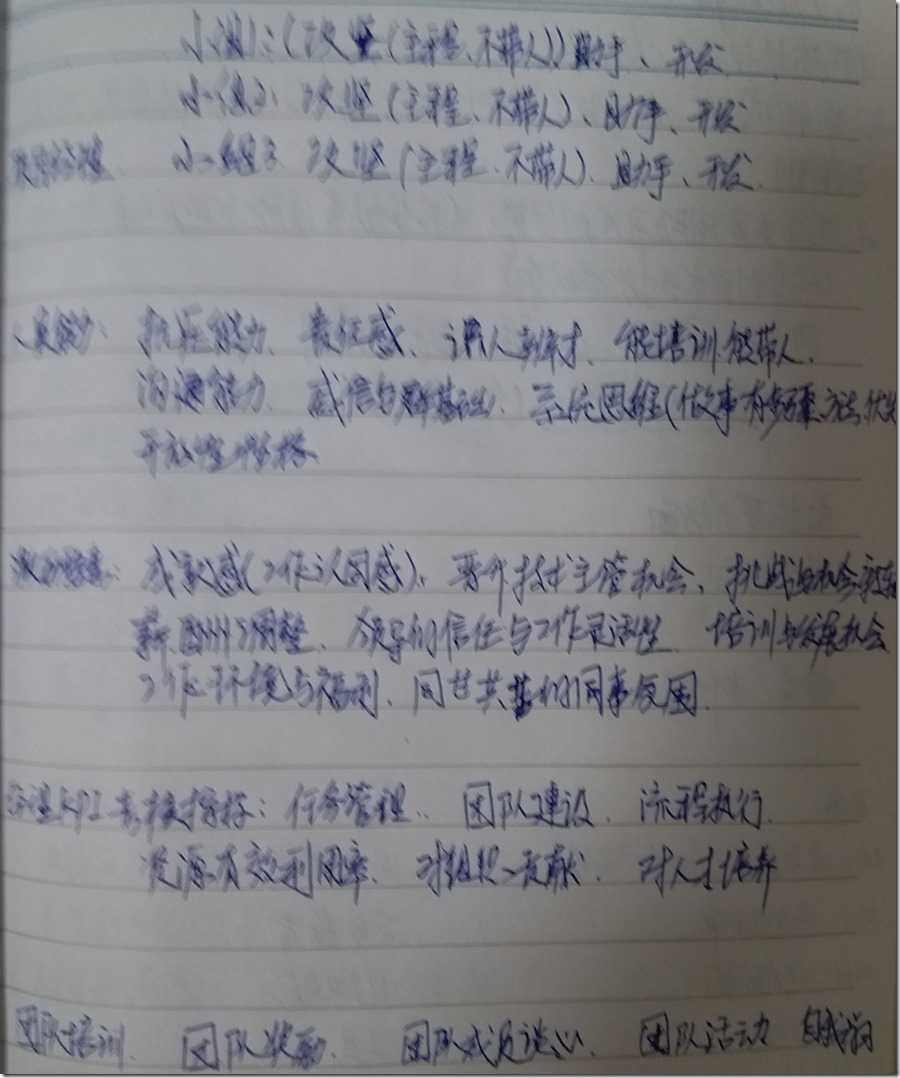 小组1：(攻坚(主程、不带人))助手、开发
小组2：攻坚(主程、不带人)、助手、开发
小组3 攻坚(主程、不带人)、助手、开发
人员能力：抗压能力、责任感、识人、能培训能带人、
沟通能力、威信与、系统思维(做事有步骤、方法、
开放性性格
激励：成就感(工作认同感)、晋升技术主管机会、挑战的机会
薪酬的调整、领导的信任与工作灵活性 培训与发展机会
工作环境与福利、同甘共苦的同事氛围
KPI考核指标：任务管理、团队建设、流程执行
资源有效利用率、对组织贡献、对人才培养
团队培训 团队奖励 团队成员谈心、团队活动